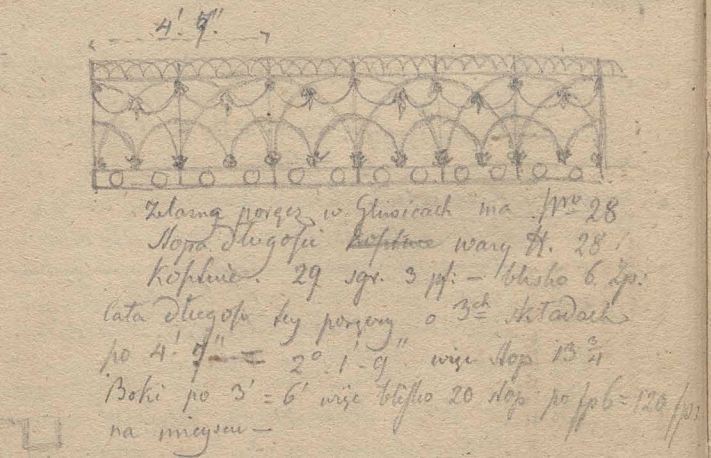 4' 7"
żelazną poręcz w Gliwicach ma 28
stopa długości wary ℔. 28
Kosztuie. 29 sgr. 3 pf: – blisko 6 Zp:
cała długość tey poręczy o 3ch składach
po 4' 7" = 2° 1' 9" więc stop 13 3/4
Boki po 3' = 6' więc blisko 20 stop po fp 6 = 120 fp:
na mieyscu –